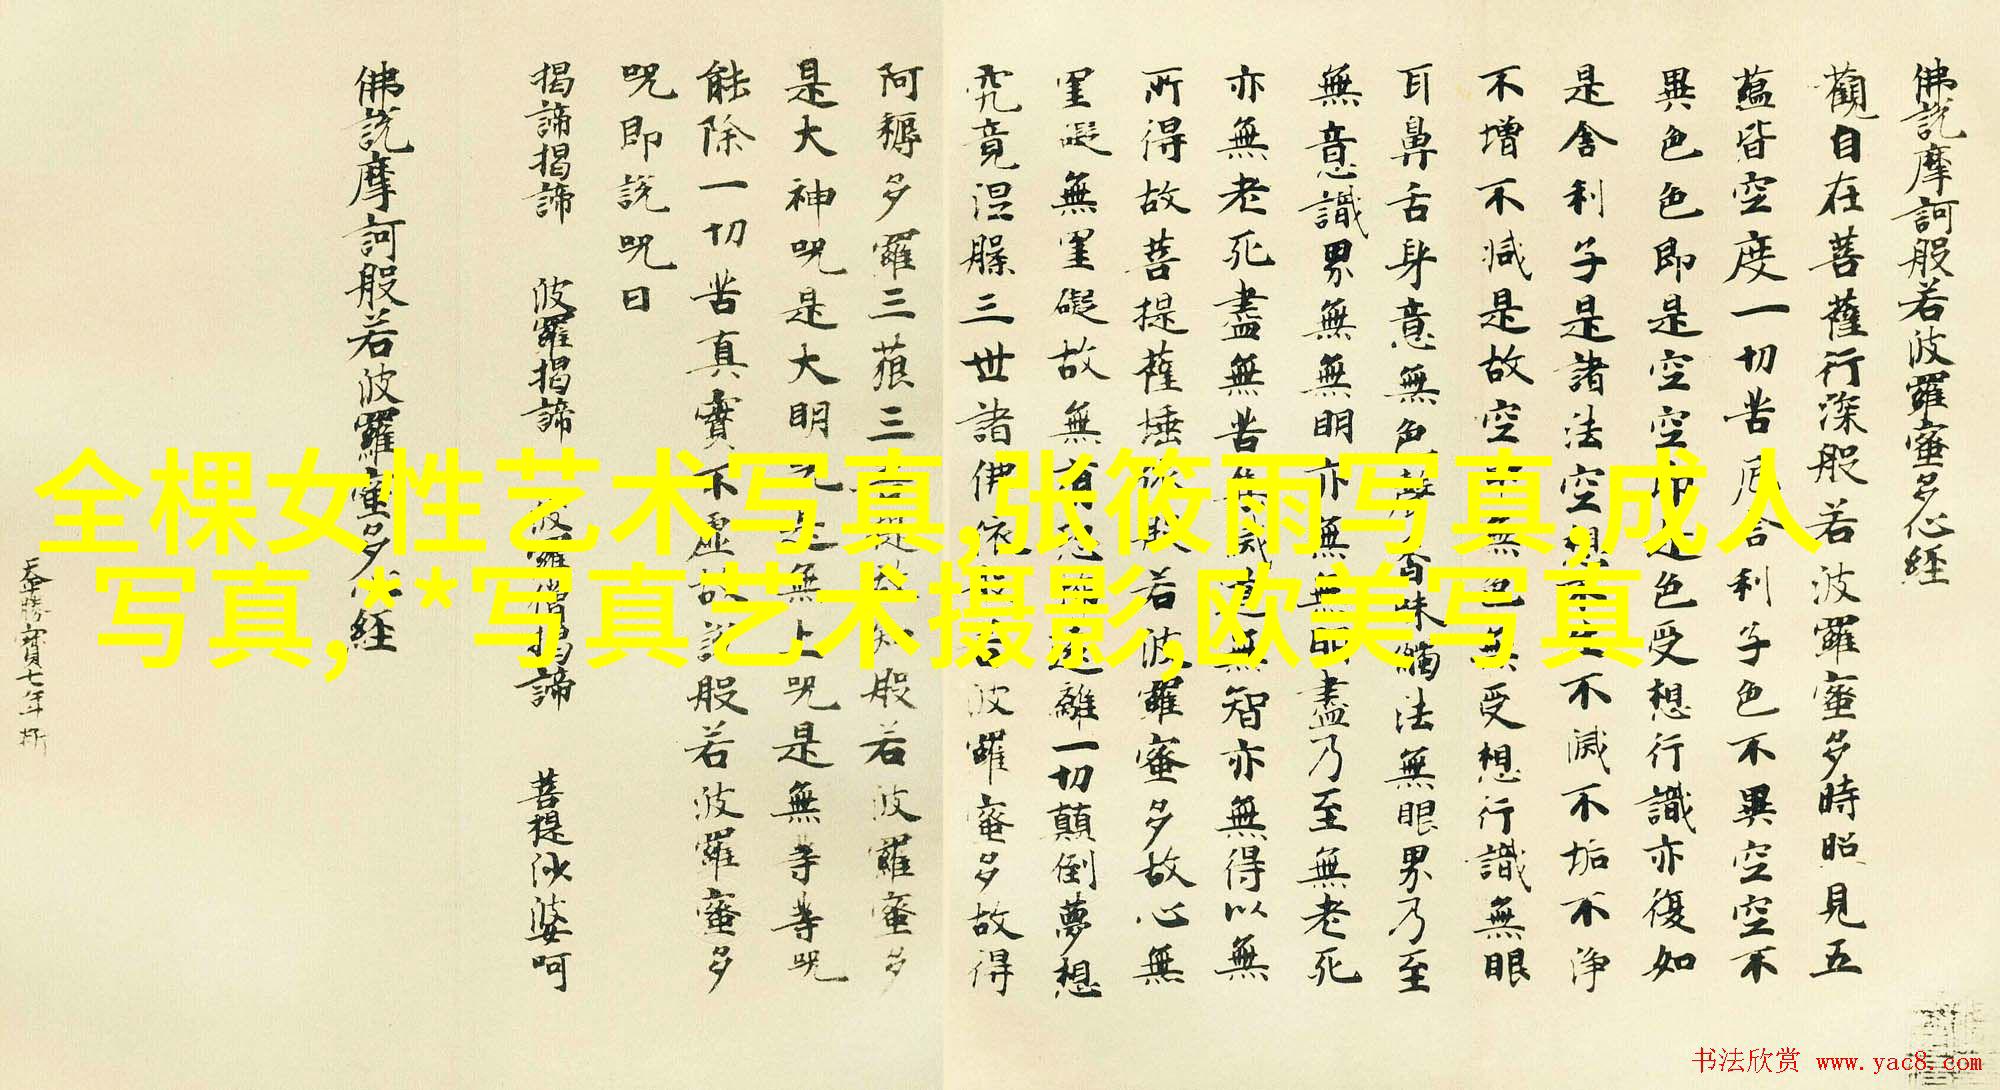 佛說摩訶般若波羅蜜多心經
觀自在菩薩行深般若波羅蜜多時照見五
蘊皆空度一切苦厄舍利子色不異空空不
異色色即是空空即是色受想行識亦復如
是舍利子是諸法空想不生不滅不垢不淨
不增不減是故空中無色無受想行識無眼
耳鼻舌身意無色聲香味觸法無眼界乃至
無意識界無無明亦無無明盡乃至無老死
亦無老死盡無苦集滅道無智亦無得以無
所得故菩提薩埵依般若波羅蜜多故心無
罣礙無罣礙故無有恐怖遠離一切顛倒夢想
究竟涅槃三世諸佛依般若波羅蜜多故得
阿耨多羅三藐三菩提故知般若波羅蜜多
是大神咒是大明咒是無上咒是無等等咒
能除一切苦真實不虛故說般若波羅蜜多
咒即說咒曰
揭諦揭諦 波羅揭諦 波羅僧揭諦 菩提沙婆呵
佛說摩訶般若波羅蜜多心經
天平勝寶七年
全棵女性艺术写真,张筱雨写真,成人
写真,**写真艺术摄影,欧美写真
书法欣赏 www.yac8.com